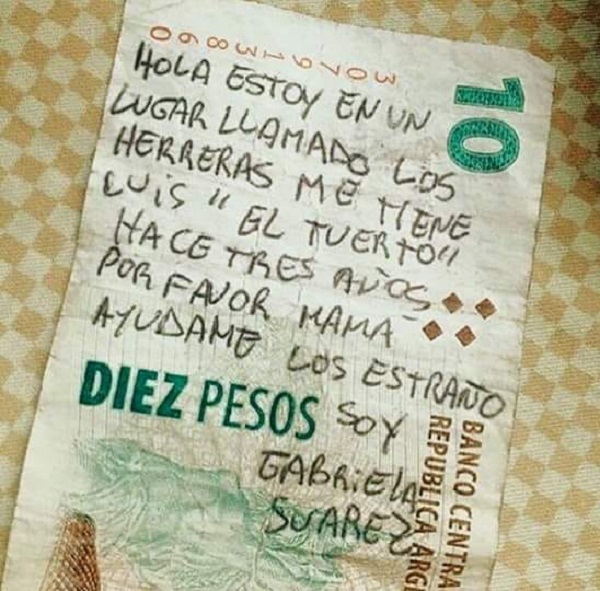 30791380 60
10
HOLA ESTOY EN UN
LUGAR LLAMADO LOS
HERRERAS ME TIENE
LUIS "EL TUERTO"
HACE TRES AÑOS
POR FAVOR MAMA
AYUDAME LOS ESTRAÑO
DIEZ PESOS
SOY
GABRIELA
SUAREZ
BANCO CENTRA
REPUBLICA ARGE